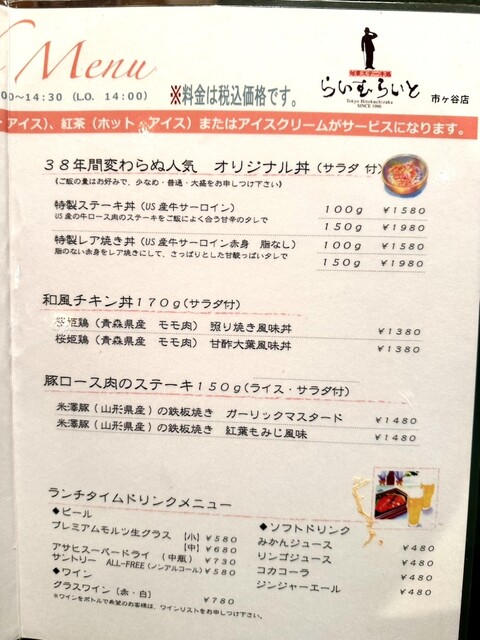 Menu
00～14:30 (L.O. 14:00)
※料金は税込価格です。
旬菜ステーキ処
らいむらいと
Tokyo Hitokuchizaka
SINCE 1980
市ヶ谷店
アイス)、紅茶(ホット・アイス)またはアイスクリームがサービスになります。
38年間変わらぬ人気 オリジナル丼(サラダ付)
(ご飯の量はお好みで、少なめ・普通・大盛をお申しつけ下さい)
特製ステーキ丼(US産牛サーロイン) 100g ¥1580
US産の牛ロース肉のステーキをご飯によく合う甘辛のタレで 150g ¥1980
特製レア焼き丼(US産牛サーロイン赤身 脂なし) 100g ¥1580
脂のない赤身をレア焼きにして、さっぱりとした甘酸っぱいタレで 150g ¥1980
和風チキン丼170g(サラダ付)
桜姫鶏(青森県産 モモ肉) 照り焼き風味丼 ¥1380
桜姫鶏(青森県産 モモ肉) 甘酢大葉風味丼 ¥1380
豚ロース肉のステーキ150g(ライス・サラダ付)
米澤豚(山形県産)の鉄板焼き ガーリックマスタード ¥1480
米澤豚(山形県産)の鉄板焼き 紅葉もみじ風味 ¥1480
ランチタイムドリンクメニュー
◆ビール
プレミアムモルツ生グラス 【小】¥580
【中】¥680
アサヒスーパードライ (中瓶) ¥730
サントリー ALL-FREE(ノンアルコール)¥580
◆ワイン
グラスワイン[赤・白] ¥780
※ワインをボトルで希望のお客様は、ワインリストをお申しつけ下さい。
◆ソフトドリンク
みかんジュース ¥480
リンゴジュース ¥480
コカコーラ ¥480
ジンジャーエール ¥480